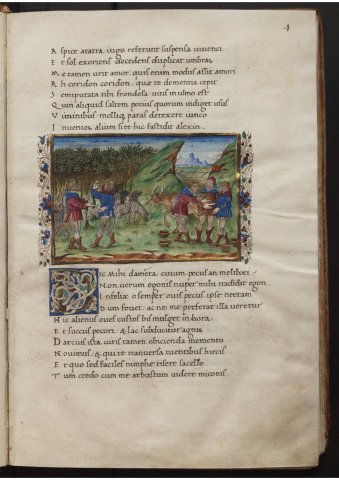 4
A spice aratra iugo referunt suspensa iuvenci
E t sol exoriens decedens duplicat umbras
M e tamen urit amor. quis enim modus assit amori
A h coridon coridon. que te dementia cepit
S emiputata tibi frondosa vitis in ulmo est
Q uin aliquid saltem potius quorum indiget usus
V iminibus molliq paras detexere iunco
I nvenies alium si te hic fastidit alexin.
D ic Mihi dameta. cuium pecus an melibei.
N on. verum egonis nuper mihi tradidit egon.
I nfelix o semper ovis pecus ipse neeram
D um fovet. ac ne me preferat illa veretur
H ic alienus oves custos bis mulget in hora.
E t succus pecori. & lac subducitur agnis
D arcius ista viris tamen obicienda memento
N ovimus & qui te tranversa tuentibus hircis
E t quo sed faciles nimphe risere sacello
T um credo cum me arbustum videre miconis.